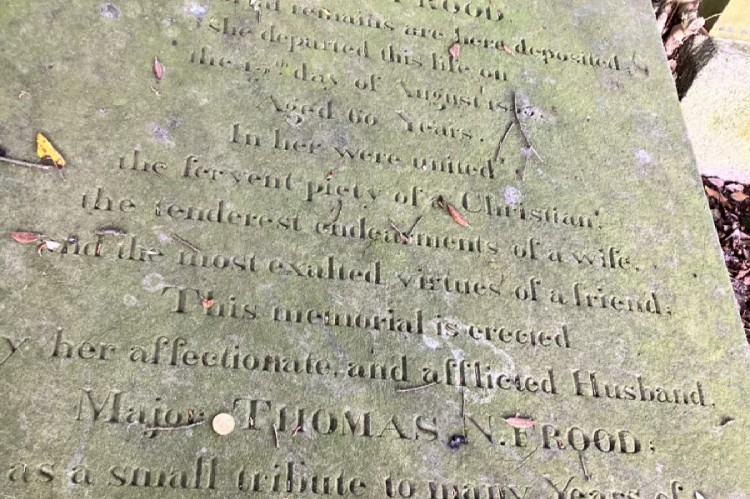 FROOD
remains are here deposited,
She departed this life on
the 17th day of August
Aged 60 Years.
In her were united
the fervent piety of a Christian:
the tenderest endearments of a wife,
and the most exalted virtues of a friend;
This memorial is erected
her affectionate, and afflicted Husband,
Major THOMAS N. FROOD;
as a small tribute to many Years of